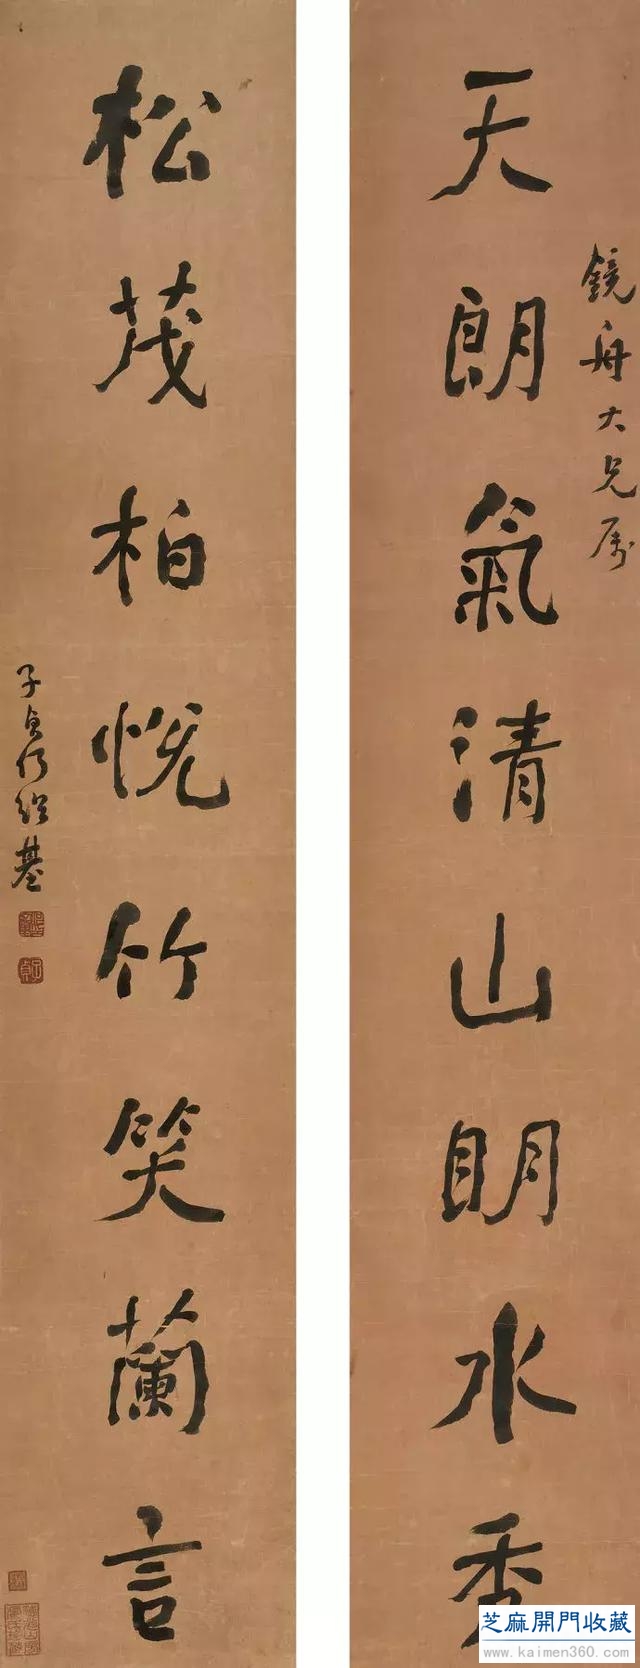 鏡舟大兄屬
天朗氣清山明水秀
松茂柏悅竹笑蘭言
子貞何紹基
芝麻開門收藏
www.kaimen360.com